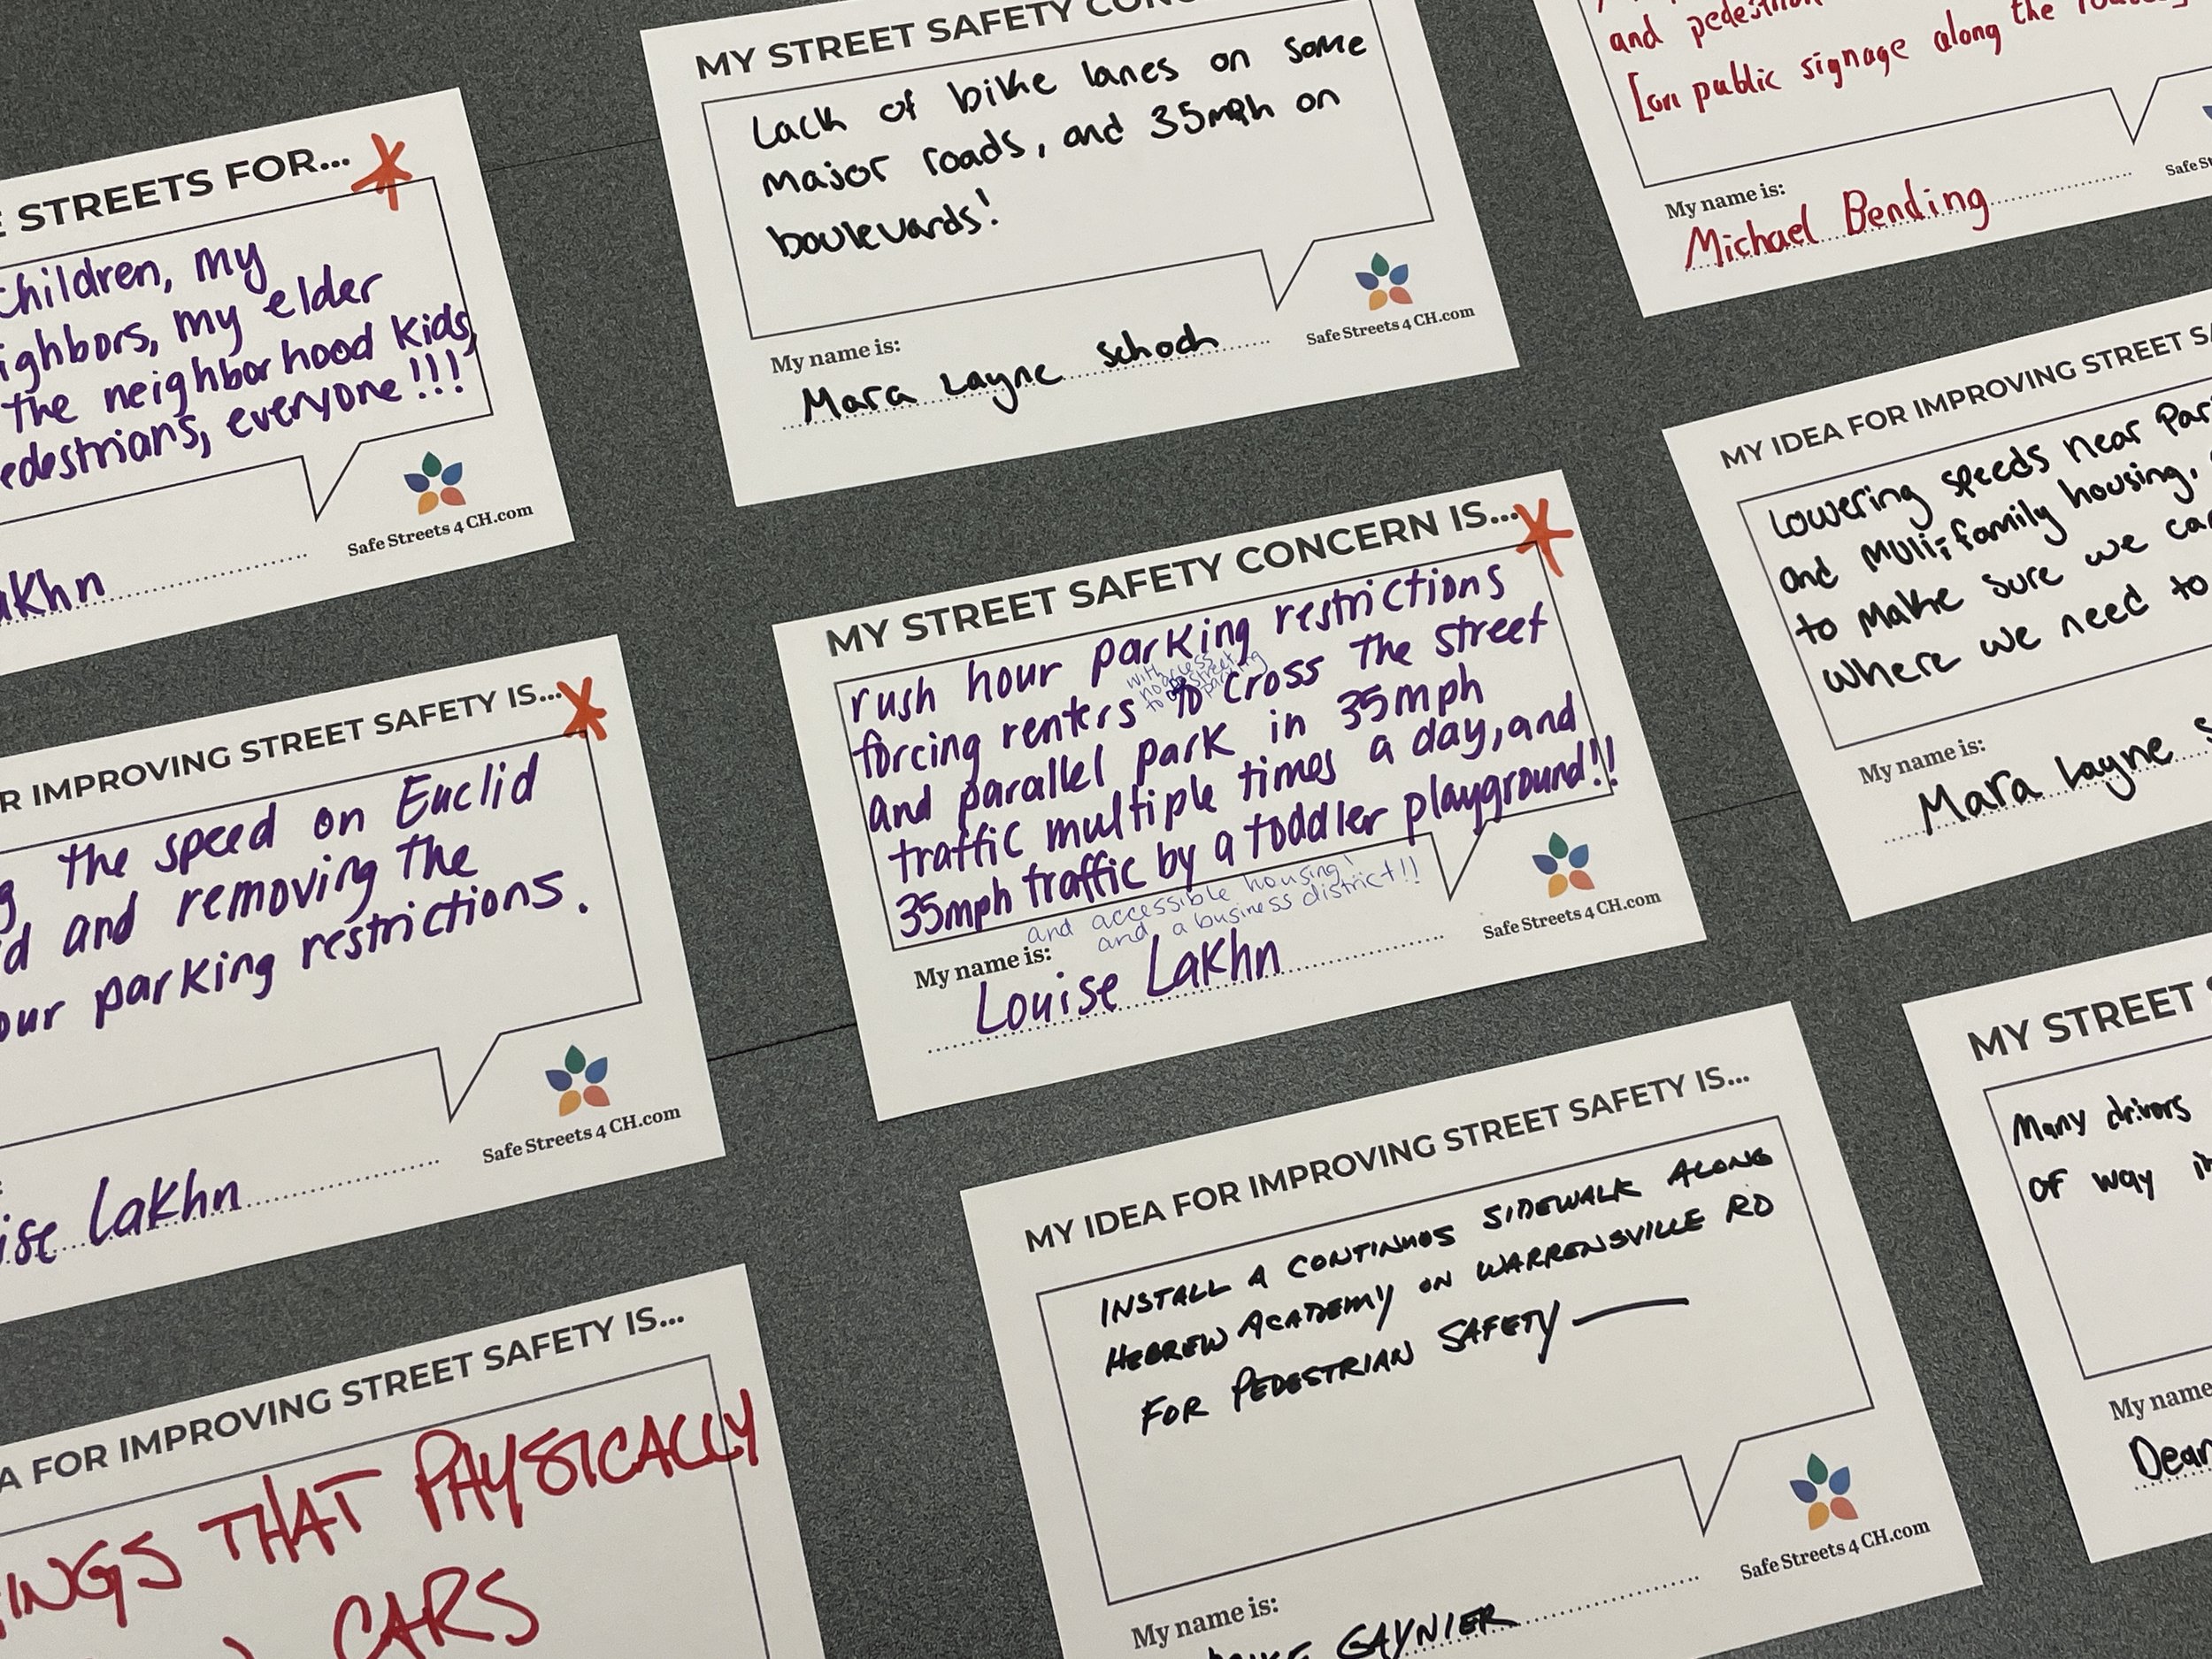 E STREETS FOR...
children, my
ighbors, my elder
the neighborhood kids,
edestrians, everyone!!!
SafeStreets4CH.com
akhn
MY STREET SAFETY CONC
Lack of bike lanes on some
major roads, and 35mph on
boulevards!
My name is:
Mara Layne Schoch
SafeStreets4CH.com
and pedestrian
[on public signage along the
My name is:
Michael Bending
Safe St
R IMPROVING STREET SAFETY IS...
g the speed on Euclid
d and removing the
our parking restrictions.
SafeStreets4CH.com
ise Lakhn
MY STREET SAFETY CONCERN IS...
rush hour parking restrictions
with
no access
to off street
parking
forcing renters to cross the street
and parallel park in 35mph
traffic multiple times a day, and
35mph traffic by a toddler playground!!
and accessible housing!
and a business district!!
My name is:
Louise Lakhn
SafeStreets4CH.com
MY IDEA FOR IMPROVING STREET SA
Lowering speeds near Par
and Muli-family housing,
to make sure we ca
where we need to
My name is:
Mara Layne S
A FOR IMPROVING STREET SAFETY IS...
INGS THAT PHYSICALLY
CARS
MY IDEA FOR IMPROVING STREET SAFETY IS...
INSTALL A CONTINUOS SIDEWALK ALONG
HEBREW ACADEMY ON WARRENSVILLE RD
FOR PEDESTRIAN SAFETY —
My name is:
GAYNIER
SafeStreets4CH.com
MY STREET S
Many drivers
of way in
My name
Dean